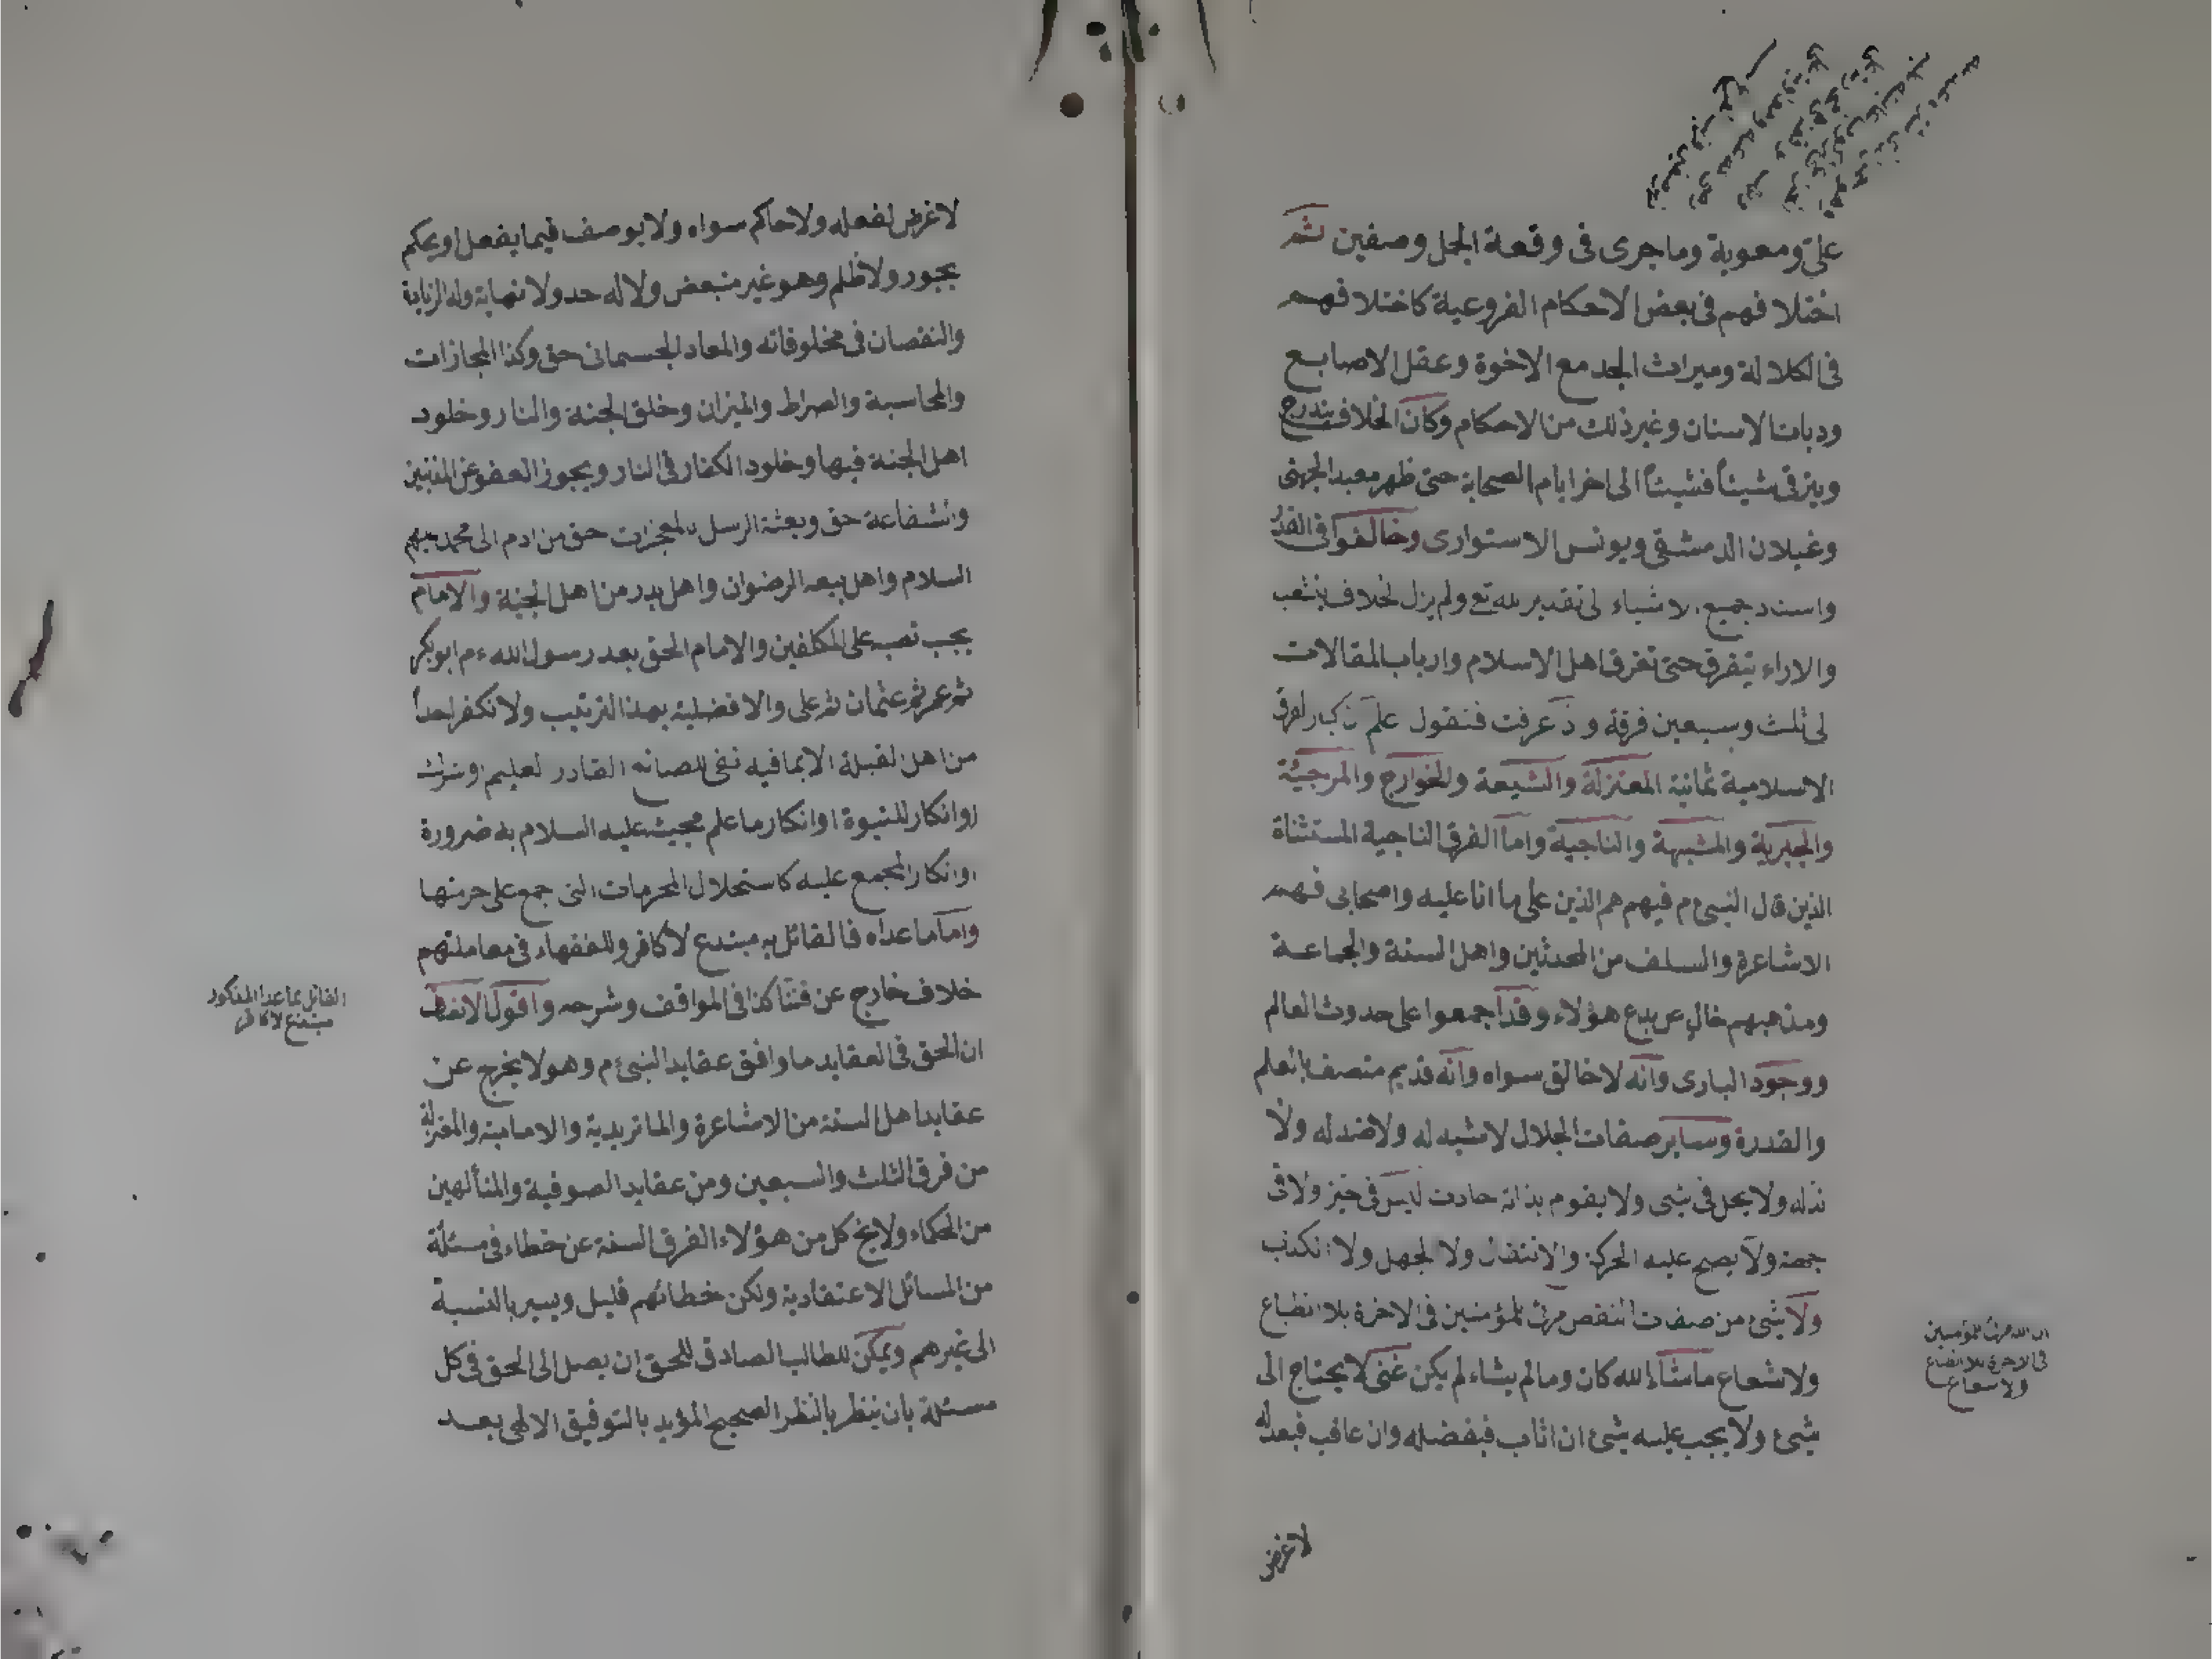 علي ومعوية وما جرى فى وقعة الجمل وصفين ثم
اختلافهم فى بعض الاحكام الفروعية كاختلافهم
فى الكلالة وميراث الجد مع الاخوة وعقل الاصابع
وديات الاسنان وغير ذلك من الاحكام وكان الخلاف يتدرج
ويترقى شيئاً فشيئاً الى اخر ايام الصحابة حتى ظهر معبد الجهنى
وغيلان الدمشقى ويونس الاسوارى وخالفوا فى القدر
واسناد جميع الاشياء الى تقدير الله تع ولم يزل الخلاف يتشعب
والاراء يتفرق حتى تفرق اهل الاسلام وارباب المقالات
الى ثلث وسبعين فرقة واذا عرفت فنقول اعلم ان كبار الفرق
الاسلامية ثمانية المعتزلة والشيعة والخوارج والمرجئة
والجبرية والمشبهة والناجية واما الفرق الناجية المستثناة
الذين قال النبى ءم فيهم هم الذين على ما انا عليه واصحابى فهم
الاشاعرة والسلف من المحدثين واهل السنة والجماعة
ومذهبهم خال عن بدع هؤلاء وقد اجمعوا على حدوث العالم
ووجود البارى وانه لا خالق سواه وانه قديم متصف بالعلم
والقدرة وساير صفات الجلال لا شبه له ولا ضد له ولا
ند له ولا يحل فى شىء ولا يقوم بذاته حادث ليس فى حيز ولا فى
جهة ولا يصح عليه الحركة والانتقال ولا الجهل ولا الكذب
ولا شئ من صفات النقص مرئ للمؤمنين فى الاخرة بلا انطباع
ولا شعاع ما شاء الله كان وما لم يشاء لم يكن غنى لا يحتاج الى
شئ ولا يجب عليه شئ ان اثاب فبفضله وان عاقب فبعدله
لا غرض
ان الله مرئ للمؤمنين
فى الاخرة بلا انطباع
ولا شعاع
لا غرض لفعله ولا حاكم سواه ولا يوصف فيما يفعل او يحكم
بجور ولا ظلم وهو غير متبعض ولا له حد ولا نهاية وله الزيادة
والنقصان فى مخلوقاته والمعاد الجسمانى حق وكذا المجازات
والمحاسبة والصراط والميزان وخلق الجنة والنار وخلود
اهل الجنة فيها وخلود الكفار فى النار ويجوز العفو عن المذنبين
والشفاعة حق وبعثة الرسل بالمعجزات حق من ادم الى محمد عليهم
السلام واهل بيعه الرضوان واهل بدر من اهل الجنة والامام
يجب نصبه على المكلفين والامام الحق بعد رسول الله ءم ابو بكر
ثم عمر ثم عثمان ثم على والافضلية بهذا الترتيب ولا نكفر احداً
من اهل القبلة الا بما فيه نفى للصانع القادر العليم او شرك
او انكار للنبوة او انكار ما علم مجيئه عليه السلام به ضرورة
او انكار المجمع عليه كاستحلال المحرمات التى اجمع على حرمتها
واما ما عداه فالقائل به مبتدع لا كافر وللفقهاء فى معاملتهم
خلاف خارج عن فننا كذا فى المواقف وشرحه واقول الانصاف
ان الحق فى العقايد ما وافق عقايد النبى ءم وهو لا يخرج عن
عقايد اهل السنة من الاشاعرة والماتريدية والامامية والمعتزلة
من فرق الثلث والسبعين ومن عقايد الصوفية والمتألهين
من الحكماء ولا ينج كل من هؤلاء الفرق الستة عن خطاء فى مسئلة
من المسائل الاعتقادية ولكن خطائهم قليل ويسير بالنسبة
الى غيرهم ويمكن للطالب الصادق للحق ان يصل الى الحق فى كل
مسئلة بان ينظر بالنظر الصحيح المؤيد بالتوفيق الالهى بعد
القائل بما عدا المذكور
مبتدع لا كافر